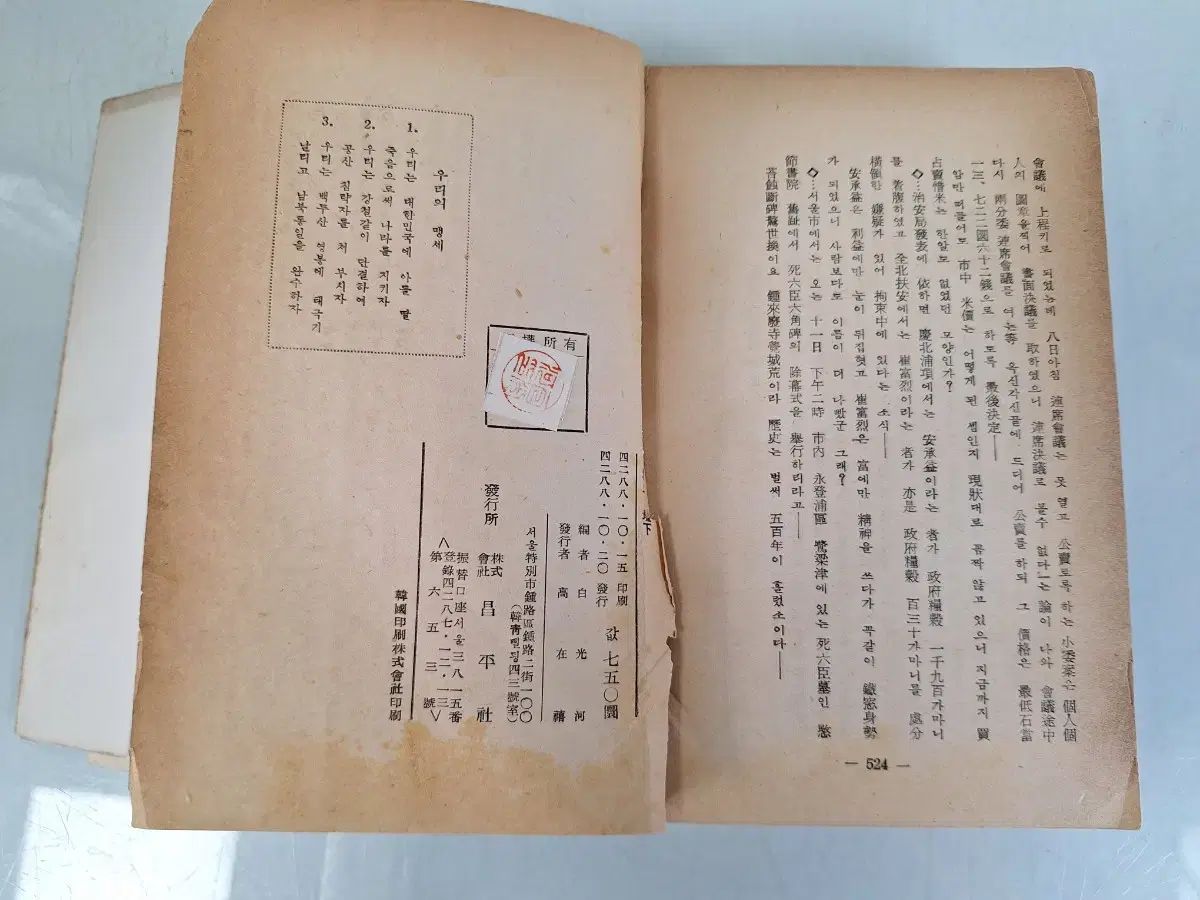 會議에 上程키로 되었는데 八日아침 連席會議는 못 열고 公賣토록 하는 小委案은 個人個
人의 圖章을찍어 書面決議를 取하였으니 連席決議로 볼수 없다는 論이 나와 會議途中
다시 兩分委 連席會議를 여는等 옥신각신끝에 드디어 公賣를 하되 그 價格은 最低石當
一三、七二二圜六十二錢으로 하도록 最後決定――
암만 떠들어도 市中 米價는 어떻게 된 셈인지 現狀대로 꼼짝 않고 있으니 지금까지 買
占賣惜米는 한알도 없었던 모양인가?
◇…治安局發表에 依하면 慶北浦項에서는 安承益이라는 者가 政府糧穀 一千九百가마니
를 着腹하였고 全北扶安에서는 崔富烈이라는 者가 亦是 政府糧穀 百三十가마니를 處分
橫領한 嫌疑가 있어 拘束中에 있다는 소식――
安承益은 利益에만 눈이 뒤집혔고 崔富烈은 富에만 精神을 쓰다가 꼭같이 鐵窓身勢
가 되었으니 사람보다도 이름이 더 나빴군 그래?
◇…서울市에서는 오는 十一日 下午二時 市內 永登浦區 鷺梁津에 있는 死六臣墓인 愍
節書院 舊趾에서 死六臣六角碑의 除幕式을 擧行하리라고――
苔蝕斷碑驚世換이요 鍾來廢寺 城荒이라 歷史는 벌써 五百年이 흘렀소이다――
― 524 ―
우리의 맹세
1. 우리는 대한민국에 아들 딸
죽음으로써 나라를 지키자
2. 우리는 강철같이 단결하여
공산 침략자를 쳐 부시자
3. 우리는 백두산 영봉에 태극기
날리고 남북통일을 완수하자
有所權
下
四二八八·一〇·一五 印刷
四二八八·一〇·二〇 發行
값 七五〇圜
編者 白光河
發行者 高在禧
서울特別市鍾路區鍾路二街一〇〇
(韓靑삘딍四三號室)
發行所 株式會社 昌平社
振替口座서울三八一五番
<登錄四二八七·一二·一三
第六五三號>
韓國印刷株式會社印刷